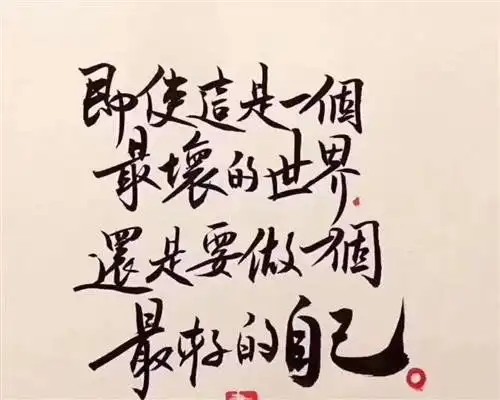 即使這是一個
最壞的世界
還是要做一個
最好的自己。